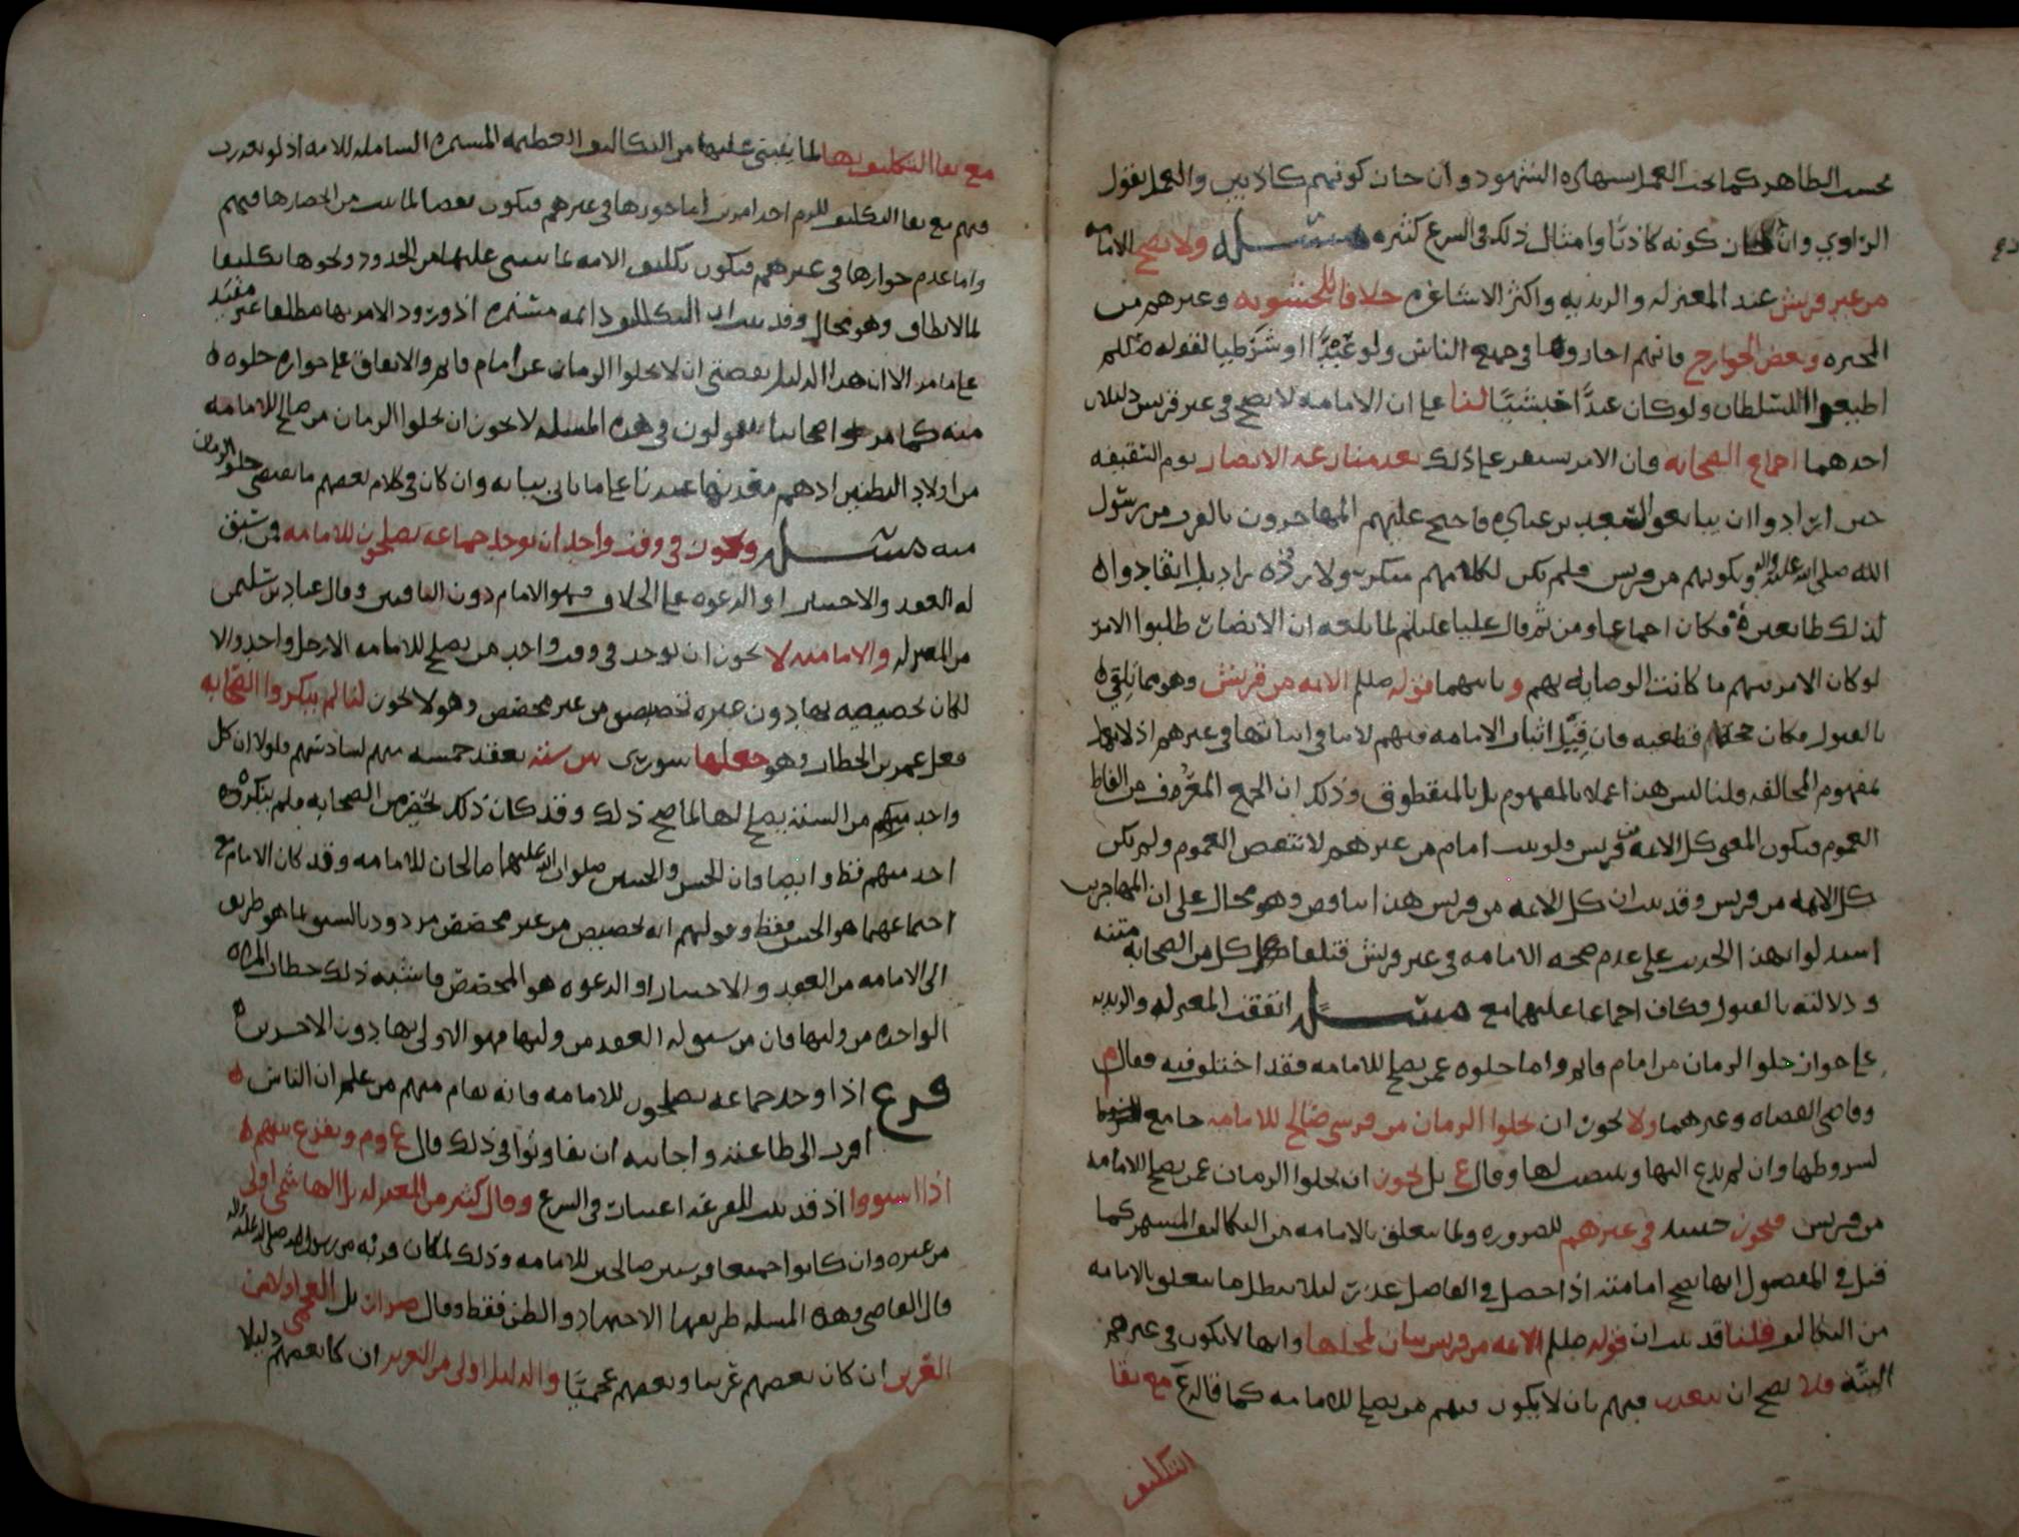 بحسب الظاهر كما يجب العمل بشهادة الشهود وان جاز كونهم كاذبين والعمل بقول
الراوي وان جاز كونه كاذبا وامثال ذلك في الشرع كثيره مسئله ولا تصح الامامه
من غير قريش عند المعتزله والزيديه واكثر الاشاعره خلافا للحشويه وغيرهم من
المجبره وبعض الخوارج فانهم اجازوها في جميع الناس ولو عبدا او شرطيا لقوله صلعم
اطيعوا السلطان ولو كان عبدا حبشيا لنا على ان الامامه لا تصح في غير قريش دليلان
احدهما اجماع الصحابه فان الامر استقر على ذلك بعد منازعه الانصار يوم السقيفه
حين ارادوا ان يبايعوا لسعد بن عباده فاحتج عليهم المهاجرون بالقرب من رسول
الله صلى الله عليه واله وبكونهم من قريش فلم يكن لكلامهم منكر ولا رده راد بل انقادوا
لذلك طايعين فكان اجماعا ومن ثم قال علي عليلم لما بلغه ان الانصار طلبوا الامر
لو كان الامر فيهم ما كانت الوصايه بهم وثانيهما قوله صلعم الائمه من قريش وهو مما تلقي
بالقبول فكان حجه قطعيه فان قيل اثبات الامامه فيهم لا ينافي اثباتها في غيرهم اذ لا يوخذ
بمفهوم المخالفه قلنا ليس هذا عملا بالمفهوم بل بالمنطوق وذلك ان الجمع المعرف من الفاظ
العموم فيكون المعنى كل الائمه من قريش فلو ثبت امام من غيرهم لانتقض العموم ولم يكن
كل الائمه من قريش وقد ثبت ان كل الائمه من قريش هذا تناقض وهو محال على ان المهاجرين
استدلوا بهذا الحديث على عدم صحه الامامه في غير قريش فتلقا كل من الصحابه متنه
ودلالته بالقبول فكان اجماعا عليهما مع مسئله اتفقت المعتزله والزيديه
على جواز خلو الزمان من امام قايم واما خلوه عمن يصلح للامامه فقد اختلفوا فيه فقال م
وقاضي القضاه وغيرهما ولا يجوز ان يخلوا الزمان من قرشي صالح للامامه جامع
لشروطها وان لم يدع اليها وينتصب لها وقال ع بل يجوز ان يخلوا الزمان عمن يصلح للامامه
من قريش فتجوز حينئذ في غيرهم للضروره ولما يتعلق بالامامه من التكاليف المستمره كما
قيل في المفضول انها تصح امامته اذا حصل في الفاضل عذر لئلا يبطل ما يتعلق بالامامه
من التكاليف قلنا قد ثبت ان قوله صلعم الائمه من قريش بيان لمحلها وانها لا تكون في غيرهم
البته فلا يصح ان تتعذر فيهم بان لا يكون فيهم من يصلح للامامه كما قاله ع مع بقا
التكليف
مع بقا التكليف بها لما ينبني عليها من التكاليف القطعيه المستمره الشامله للامه اذ لو تعذرت
فيهم مع بقا التكليف للزم احد امرين اما جوازها في غيرهم فيكون نقضا لما ثبت من انحصارها فيهم
واما عدم جوازها في غيرهم فيكون تكليف الامه بما ينبني عليها من الحدود ونحوها تكليفا
لما لا يطاق وهو محال وقد ثبت ان التكاليف دائمه مستمره اذ ورود الامر بها مطلقا غير مقيد
على ما مر الا ان هذا الدليل يقتضي ان لا يخلوا الزمان عن امام قايم والاتفاق على جواز خلوه
منه كما مر واصحابنا يقولون في هذه المسئله لا يجوز ان يخلوا الزمان من صالح للامامه
من اولاد البطنين اذ هم معدنها عندنا على ما ياتي بيانه وان كان في كلام بعضهم ما يقتضي خلو الزمان
منه مسئله ويجوز في وقت واحد ان يوجد جماعه يصلحون للامامه فمن سبق
له العقد والاختيار او الدعوه على الخلاف فهو الامام دون الباقين وقال عباد بن سليمن
من المعتزله والاماميه لا يجوز ان يوجد في وقت واحد من يصلح للامامه الا رجل واحد والا
لكان تخصيصه بها دون غيره تخصيص من غير مخصص وهو لا يجوز لنا لم ينكروا الصحابه
فعل عمر بن الخطاب وهو جعلها شورى بين سته بعقد خمسه منهم لسادسهم فلولا ان كل
واحد منهم من السته يصلح لها لما صح ذلك وقد كان ذلك بمحضر من الصحابه فلم ينكره
احد منهم قط وايضا فان الحسن والحسين صلوات الله عليهما صالحان للامامه وقد كان الامام مع
اجتماعهما هو الحسن فقط وقولهم انه تخصيص من غير مخصص مردود بالسبق لما هو طريق
الى الامامه من العقد والاختيار او الدعوه هو المخصص فاشبه ذلك خطاب المراه
الواحده من وليها فان من سبق له العقد من وليها فهو الاولى بها دون الاخرين
فرع اذا وجد جماعه يصلحون للامامه فانه يقام منهم من علم ان الناس
اقرب الى طاعته واجابته ان تفاوتوا في ذلك قال ع وم ويقرع بينهم
اذا استووا اذ قد ثبت للقرعه اعتبار في الشرع وقال كثير من المعتزله بل الهاشمي اولى
من غيره وان كانوا جميعا قرشيين صالحين للامامه وذلك لمكان قربه من رسول الله صلى الله عليه واله
قال القاضي وهذه المسئله طريقها الاجتهاد والظن فقط وقال ضرار بل العجمي اولا من
العربي ان كان بعضهم عربيا وبعضهم عجميا والذليل اولى من العزيز ان كان بعضهم ذليلا